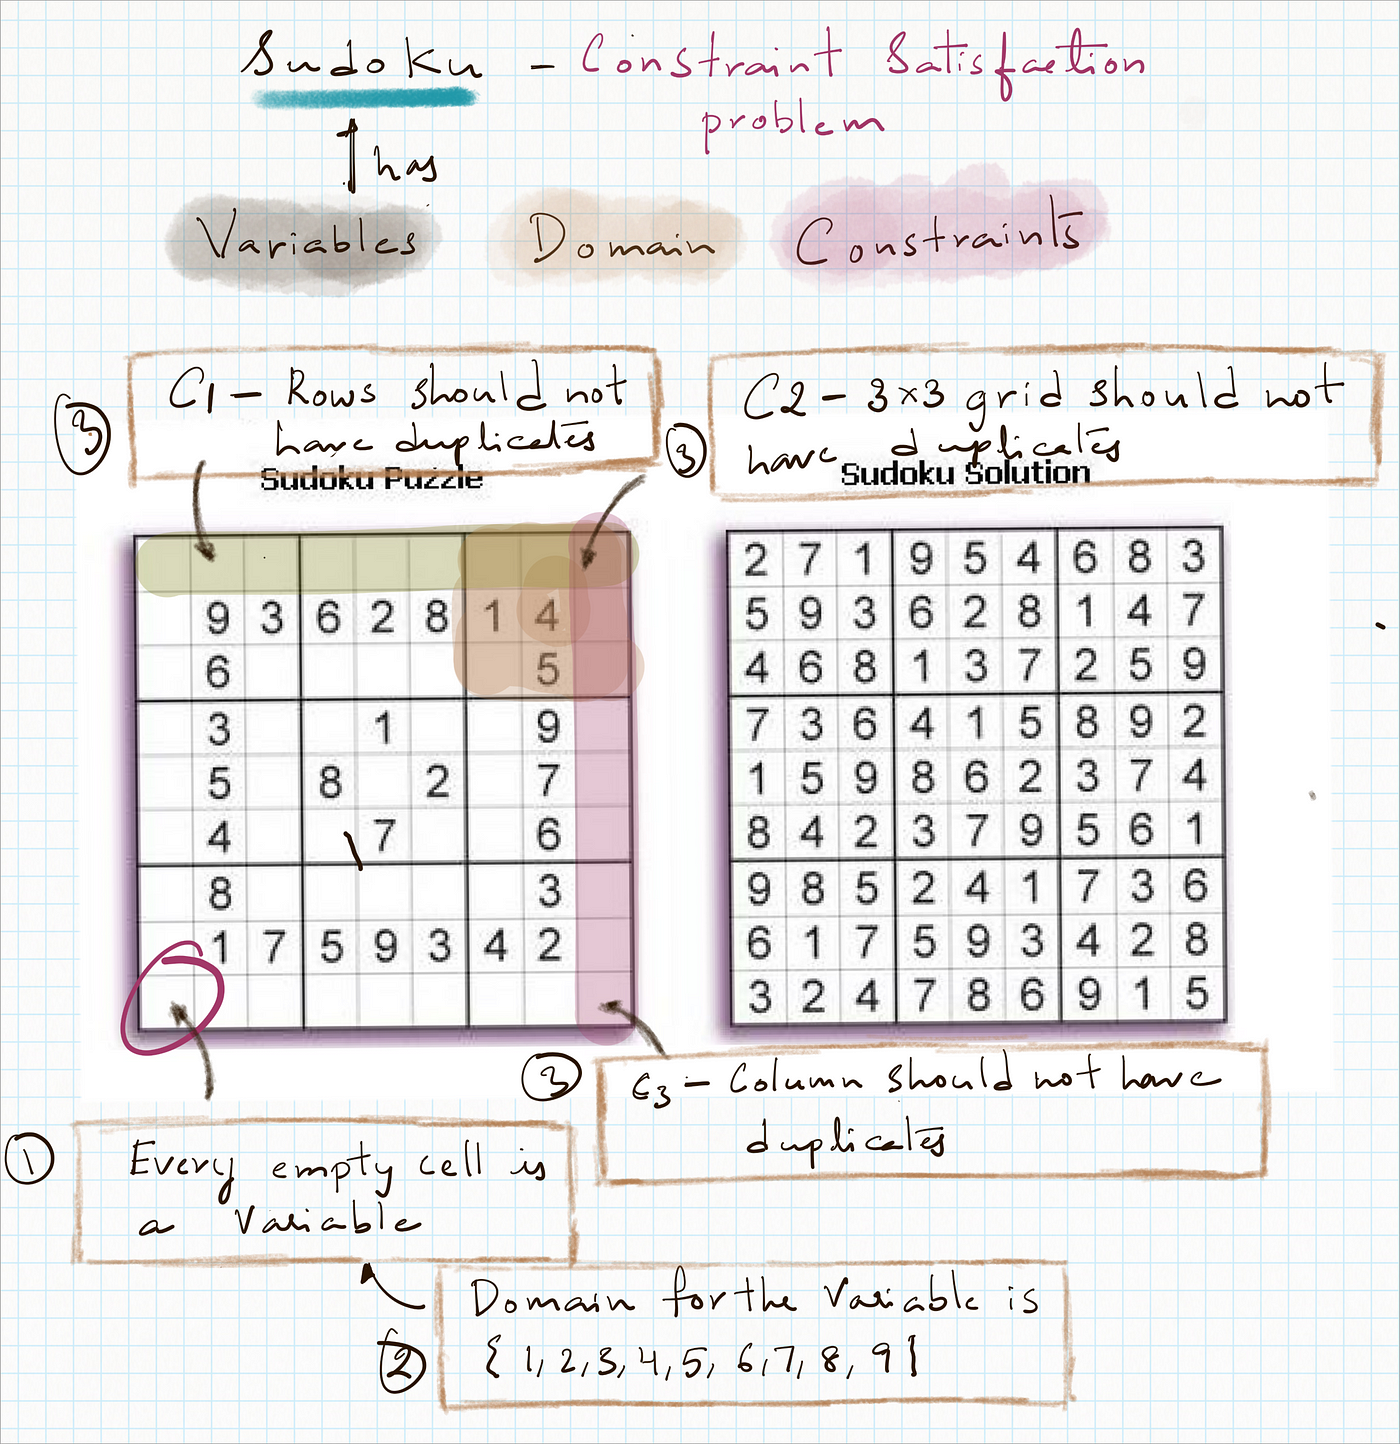 Sudoku - Constraint Satisfaction
problem
has
Variables Domain Constraints
3
C1 - Rows should not
have duplicates
3
C2 - 3x3 grid should not
have duplicates
Sudoku Puzzle
9 3 6 2 8 1 4
6 5
3 1 9
5 8 2 7
4 7 6
8 3
1 7 5 9 3 4 2
Sudoku Solution
2 7 1 9 5 4 6 8 3
5 9 3 6 2 8 1 4 7
4 6 8 1 3 7 2 5 9
7 3 6 4 1 5 8 9 2
1 5 9 8 6 2 3 7 4
8 4 2 3 7 9 5 6 1
9 8 5 2 4 1 7 3 6
6 1 7 5 9 3 4 2 8
3 2 4 7 8 6 9 1 5
3
C3 - Column should not have
duplicates
1
Every empty cell is
a variable
2
Domain for the variable is
{ 1, 2, 3, 4, 5, 6, 7, 8, 9 }